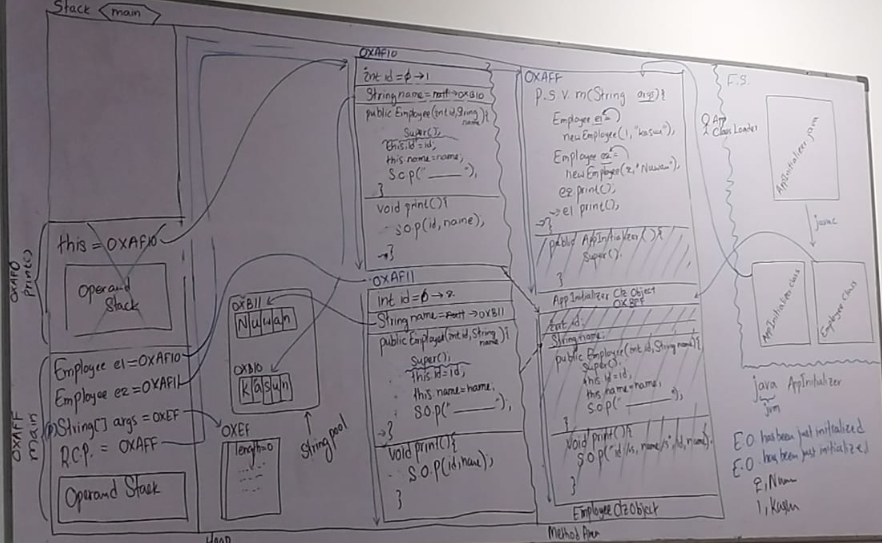 Stack main
this = OXAF10
Operand
Stack
OXAFO
print()
Employee e1=OXAF10
Employee e2=OXAF11
String[] args = OXEF
R.C.P. = OXAFF
Operand Stack
OXAFF
main
OXB11
Nuwan
OXB10
Kasun
String pool
OXEF
length=0
OXAF10
int id = 0 → 1
String name = null → OXB10
public Employee(int id, String name){
Super();
this.id = id,
this name = name,
S.O.P("______"),
}
void print(){
S.O.p(id, name),
}
OXAF11
int id = 0 → 2
String name = null → OXB11
public Employee(int id, String name){
Super();
this id = id,
this name = name,
S.O.P("______"),
}
void print(){
S.O.P(id, name),
}
OXAFF
P.S.V.m(String args){
Employee e1=
new Employee(1, "kasun"),
Employee e2=
new Employee(2, "Nuwan"),
e2 print(),
e1 print(),
}
public AppInitializer(){
Super().
}
AppInitializer Clz Object
int id,
String name,
public Employee(int id, String name){
Super();
this id = id,
this name = name,
S.O.P("______"),
}
void print(){
}
Employee Clz Object
Method Area
F.S.
App
Class Loader
AppInitializer.java
javac
AppInitializer.class
Employee.class
java AppInitializer
jvm
E.O. has been just initialized
E.O. has been just initialized
2, Nuwan
1, Kasun